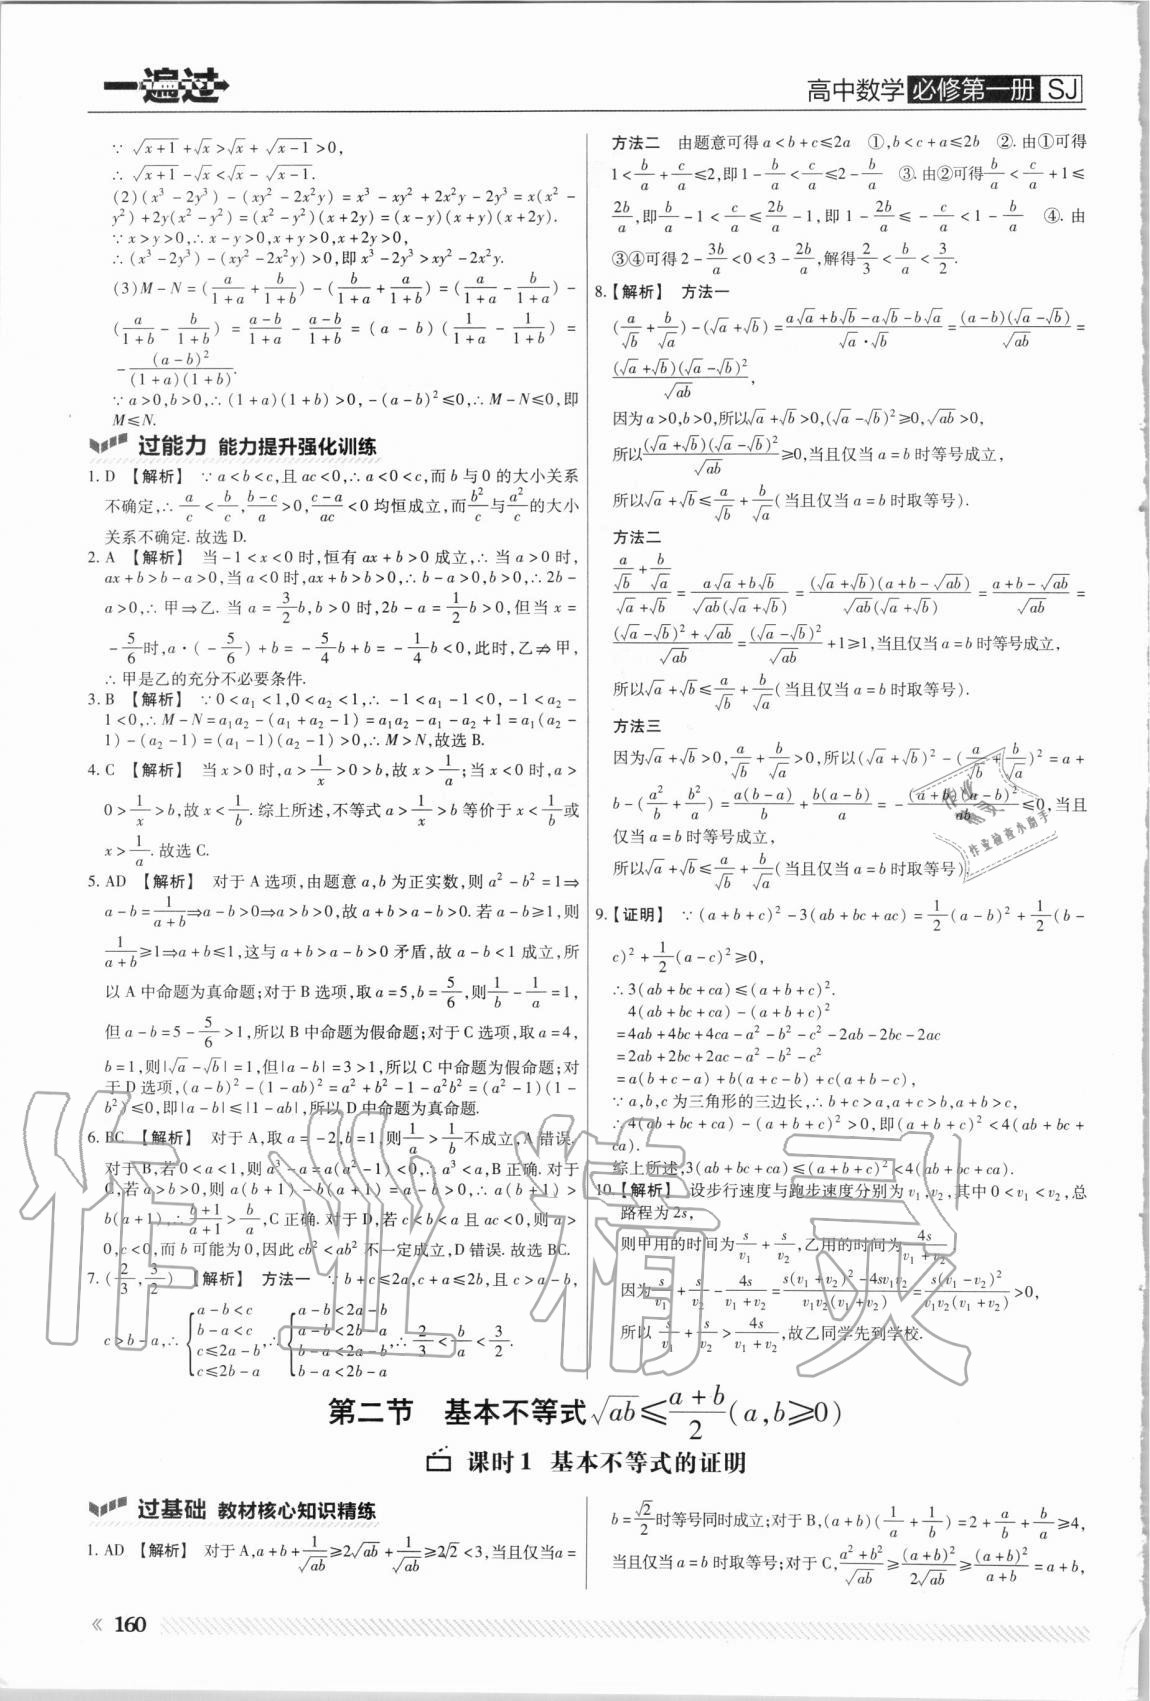 一遍过
高中数学 必修第一册 SJ
∵ √(x+1)+√x>√x+√(x-1)>0,
∴ √(x+1)-√x<√x-√(x-1).
(2)(x³-2y³)-(xy²-2x²y)=x³-xy²+2x²y-2y³=x(x²-
y²)+2y(x²-y²)=(x²-y²)(x+2y)=(x-y)(x+y)(x+2y).
∵x>y>0,∴x-y>0,x+y>0,x+2y>0,
∴(x³-2y³)-(xy²-2x²y)>0,即x³-2y³>xy²-2x²y.
(3)M-N=(a/(1+a)+b/(1+b))-(b/(1+a)+a/(1+b))=(a/(1+a)-b/(1+a))-
(a/(1+b)-b/(1+b))=(a-b)/(1+a)-(a-b)/(1+b)=(a-b)(1/(1+a)-1/(1+b))=
-(a-b)²/((1+a)(1+b)).
∵a>0,b>0,∴(1+a)(1+b)>0,-(a-b)²≤0,∴M-N≤0,即
M≤N.
过能力 能力提升强化训练
1. D 【解析】 ∵a<b<c,且ac<0,∴a<0<c,而b与0的大小关系
不确定,∴a/c<b/c,(b-c)/a>0,(c-a)/ac<0均恒成立,而b²/c与a²/c的大小
关系不确定.故选D.
2. A 【解析】 当-1<x<0时,恒有ax+b>0成立,∴当a>0时,
ax+b>b-a>0,当a<0时,ax+b>b>0,∴b-a>0,b>0,∴2b-
a>0,∴甲⇒乙.当a=3/2b,b>0时,2b-a=1/2b>0,但当x=
-5/6时,a·(-5/6)+b=-5/4b+b=-1/4b<0,此时,乙⇏甲,
∴甲是乙的充分不必要条件.
3. B 【解析】 ∵0<a₁<1,0<a₂<1,∴-1<a₁-1<0,-1<a₂-
1<0,∴M-N=a₁a₂-(a₁+a₂-1)=a₁a₂-a₁-a₂+1=a₁(a₂-
1)-(a₂-1)=(a₁-1)(a₂-1)>0,∴M>N,故选B.
4. C 【解析】 当x>0时,a>1/x>0>b,故x>1/a;当x<0时,a>
0>1/x>b,故x<1/b.综上所述,不等式a>1/x>b等价于x<1/b或
x>1/a.故选C.
5. AD 【解析】 对于A选项,由题意a,b为正实数,则a²-b²=1⇒
a-b=1/(a+b)⇒a-b>0⇒a>b>0,故a+b>a-b>0.若a-b≥1,则
1/(a+b)≥1⇒a+b≤1,这与a+b>a-b>0矛盾,故a-b<1成立,所
以A中命题为真命题;对于B选项,取a=5,b=5/6,则1/b-1/a=1,
但a-b=5-5/6>1,所以B中命题为假命题;对于C选项,取a=4,
b=1,则|√a-√b|=1,但|a-b|=3>1,所以C中命题为假命题;对
于D选项,(a-b)²-(1-ab)²=a²+b²-1-a²b²=(a²-1)(1-
b²)≤0,即|a-b|≤|1-ab|,所以D中命题为真命题.
6. BC 【解析】 对于A,取a=-2,b=1,则1/a>1/b不成立,A错误.
对于B,若0<a<1,则a³-a=a(a²-1)<0,∴a³<a,B正确.对于
C,若a>b>0,则a(b+1)-b(a+1)=a-b>0,∴a(b+1)>
b(a+1),∴(b+1)/(a+1)>b/a,C正确.对于D,若c<b<a且ac<0,则a>
0,c<0,而b可能为0,因此cb²<ab²不一定成立,D错误.故选BC.
7. (2/3,3/2) 【解析】 方法一 ∵b+c≤2a,c+a≤2b,且c>a-b,
c>b-a,∴{a-b<c
b-a<c
c≤2a-b,
c≤2b-a
∴{a-b<2a-b
a-b<2b-a
b-a<2a-b,
b-a<2b-a
∴2/3<b/a<3/2.
方法二 由题意可得a<b+c≤2a ①,b<c+a≤2b ②.由①可得
1<b/a+c/a≤2,即1-b/a<c/a≤2-b/a ③.由②可得b/a<c/a+1≤
2b/a,即b/a-1<c/a≤2b/a-1,即1-2b/a≤-c/a<1-b/a ④.由
③④可得2-3b/a<0<3-2b/a,解得2/3<b/a<3/2.
8.【解析】 方法一
(a/√b+b/√a)-(√a+√b)=(a√a+b√b-a√b-b√a)/(√a·√b)=(a-b)(√a-√b)/√ab=
(√a+√b)(√a-√b)²/√ab,
因为a>0,b>0,所以√a+√b>0,(√a-√b)²≥0,√ab>0,
所以(√a+√b)(√a-√b)²/√ab≥0,当且仅当a=b时等号成立,
所以√a+√b≤a/√b+b/√a(当且仅当a=b时取等号).
方法二
(a/√b+b/√a)/(√a+√b)=(a√a+b√b)/(√ab(√a+√b))=(√a+√b)(a+b-√ab)/(√ab(√a+√b))=(a+b-√ab)/√ab=
((√a-√b)²+√ab)/√ab=(√a-√b)²/√ab+1≥1,当且仅当a=b时等号成立,
所以√a+√b≤a/√b+b/√a(当且仅当a=b时取等号).
方法三
因为√a+√b>0,a/√b+b/√a>0,所以(√a+√b)²-(a/√b+b/√a)²=a+
b-(a²/b+b²/a)=a(b-a)/b+b(a-b)/a=-(a+b)(a-b)²/ab≤0,当且
仅当a=b时等号成立,
所以√a+√b≤a/√b+b/√a(当且仅当a=b时取等号).
9.【证明】 ∵(a+b+c)²-3(ab+bc+ac)=1/2(a-b)²+1/2(b-
c)²+1/2(a-c)²≥0,
∴3(ab+bc+ca)≤(a+b+c)².
4(ab+bc+ca)-(a+b+c)²
=4ab+4bc+4ca-a²-b²-c²-2ab-2bc-2ac
=2ab+2bc+2ac-a²-b²-c²
=a(b+c-a)+b(a+c-b)+c(a+b-c),
∵a,b,c为三角形的三边长,∴b+c>a,a+c>b,a+b>c,
∴4(ab+bc+ca)-(a+b+c)²>0,即(a+b+c)²<4(ab+bc+
ca).
综上所述,3(ab+bc+ca)≤(a+b+c)²<4(ab+bc+ca).
10.【解析】 设步行速度与跑步速度分别为v₁,v₂,其中0<v₁<v₂,总
路程为2s,
则甲用的时间为s/v₁+s/v₂,乙用的时间为4s/(v₁+v₂),
因为s/v₁+s/v₂-4s/(v₁+v₂)=(s(v₁+v₂)²-4sv₁v₂)/(v₁v₂(v₁+v₂))=s(v₁-v₂)²/(v₁v₂(v₁+v₂))>0,
所以s/v₁+s/v₂>4s/(v₁+v₂),故乙同学先到学校.
第二节 基本不等式√ab≤(a+b)/2(a,b≥0)
课时1 基本不等式的证明
过基础 教材核心知识精练
1. AD 【解析】 对于A,a+b+1/√ab≥2√ab+1/√ab≥2√2<3,当且仅当a=
b=√2/2时等号同时成立;对于B,(a+b)(1/a+1/b)=2+a/b+b/a≥4,
当且仅当a=b时取等号;对于C,(a²+b²)/√ab≥(a+b)²/2√ab≥(a+b)²/(a+b)=a+b,
« 160
作业精灵
作业
精灵
作业检查小助手